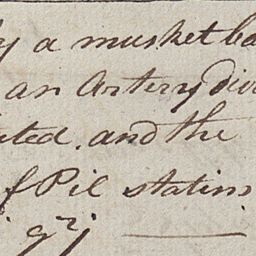 y a musket ba
an Artery div
ated. and the
f Pil statim
gr j